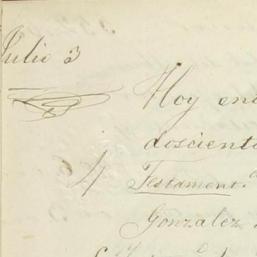 Julio 3
Hoy
doscient
4 Testament.
Gonzalez